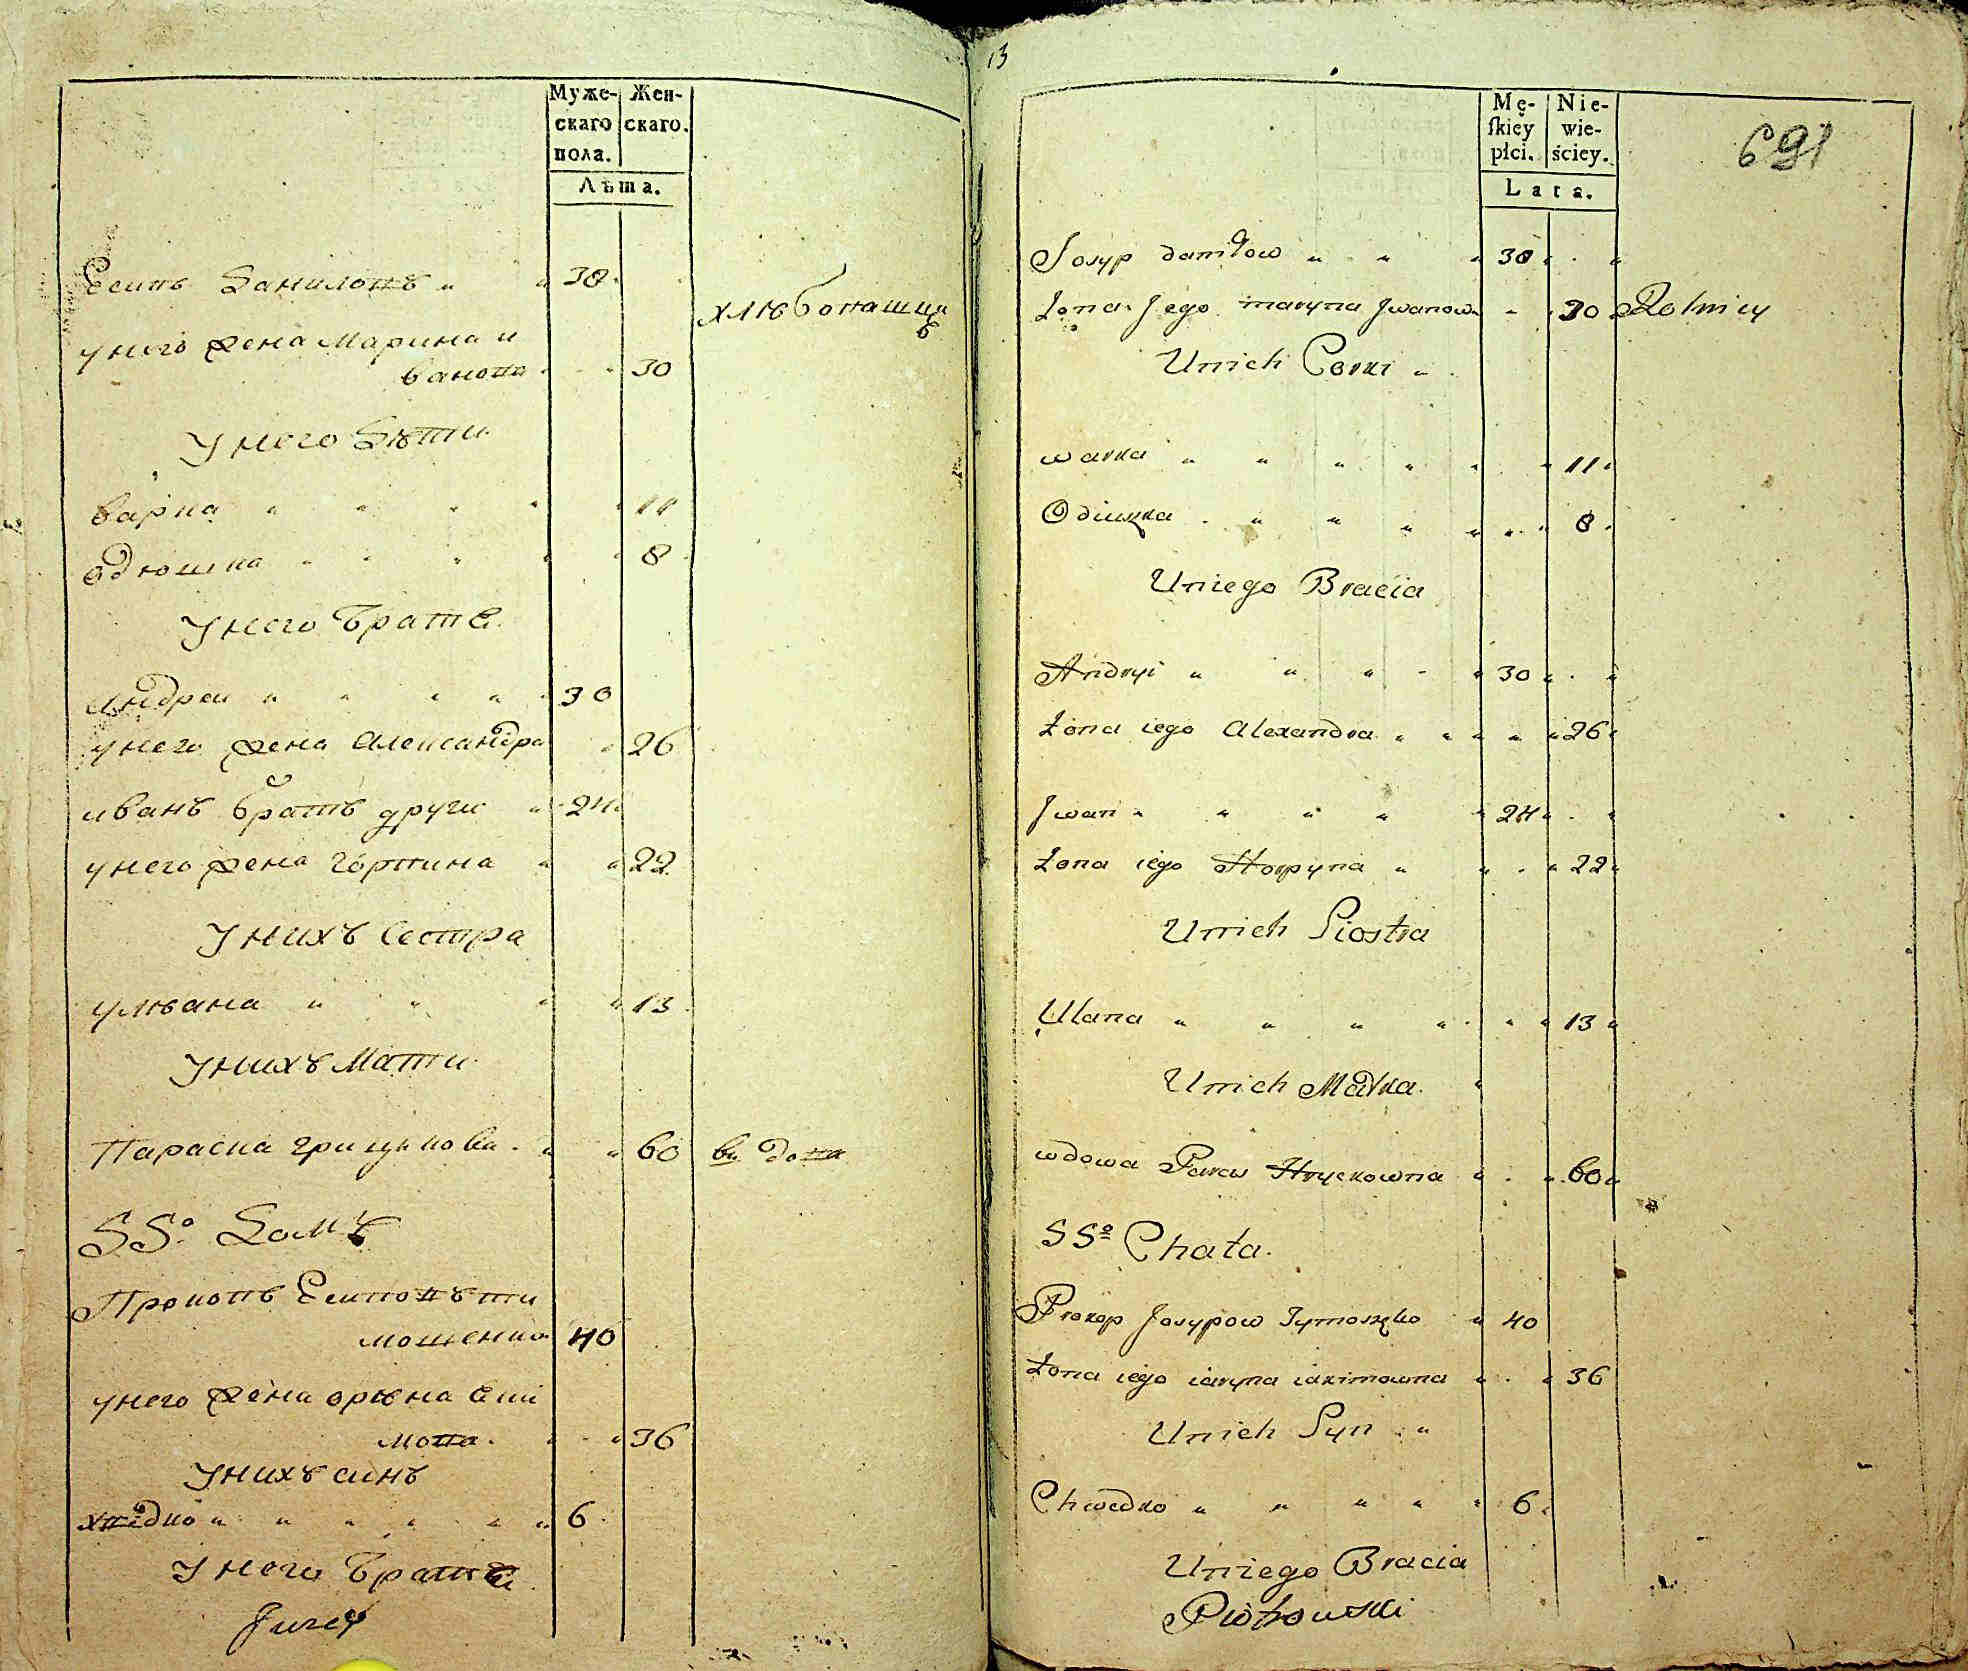 Муже- Жен-
скаго скаго.
пола.
Лѣта.
Есипъ Данилопъ " " 38
хлѣбопашцы
у него жена Марина и
ванопа 30
У него Дѣти
варка " " " " 11
одюшка " " " 8
У него Братѣ
андреи " " " " 30
у него жена Александра " 26
иванъ братъ други " 24
у него жена Гърпина " " 22
У нихъ сестра
улѣана " " " " 13
У нихъ Мати
Параска грицкова " " 60 вдопа
55º Домъ
Прокопъ Есипопъ ти
мошенко 40
у него жена орѣна Еки
мопа " " 36
У нихъ синъ
хпедко " " " " " " 6
У него Братѣ
Jurey
13
691
Mę- Nie-
ſkiey wie-
płci. ściey.
Lata.
Josyp daniłow " " " 38
Zona Jego maryna Jwanow 30 Rolnicy
Unich Corki "
warka " " " " " " 11
Odiuszka " " " " " 8
Uniego Bracia
Andryi " " " " " 30
Zona iego Alexandra " " " " " 26
Jwan " " " " " 24
Zona iego Horpyna " " " 22
Unich Siostra
Ulana " " " " " " 13
Unich Matka
wdowa Paras Hryckowna " " 60
55º Chata.
Prokop Josypow Tymoszko " 40
Zona iego iaryna iakimowna " " 36
Unich Syn "
Chwedko " " " " " 6
Uniego Bracia
Piotrowski